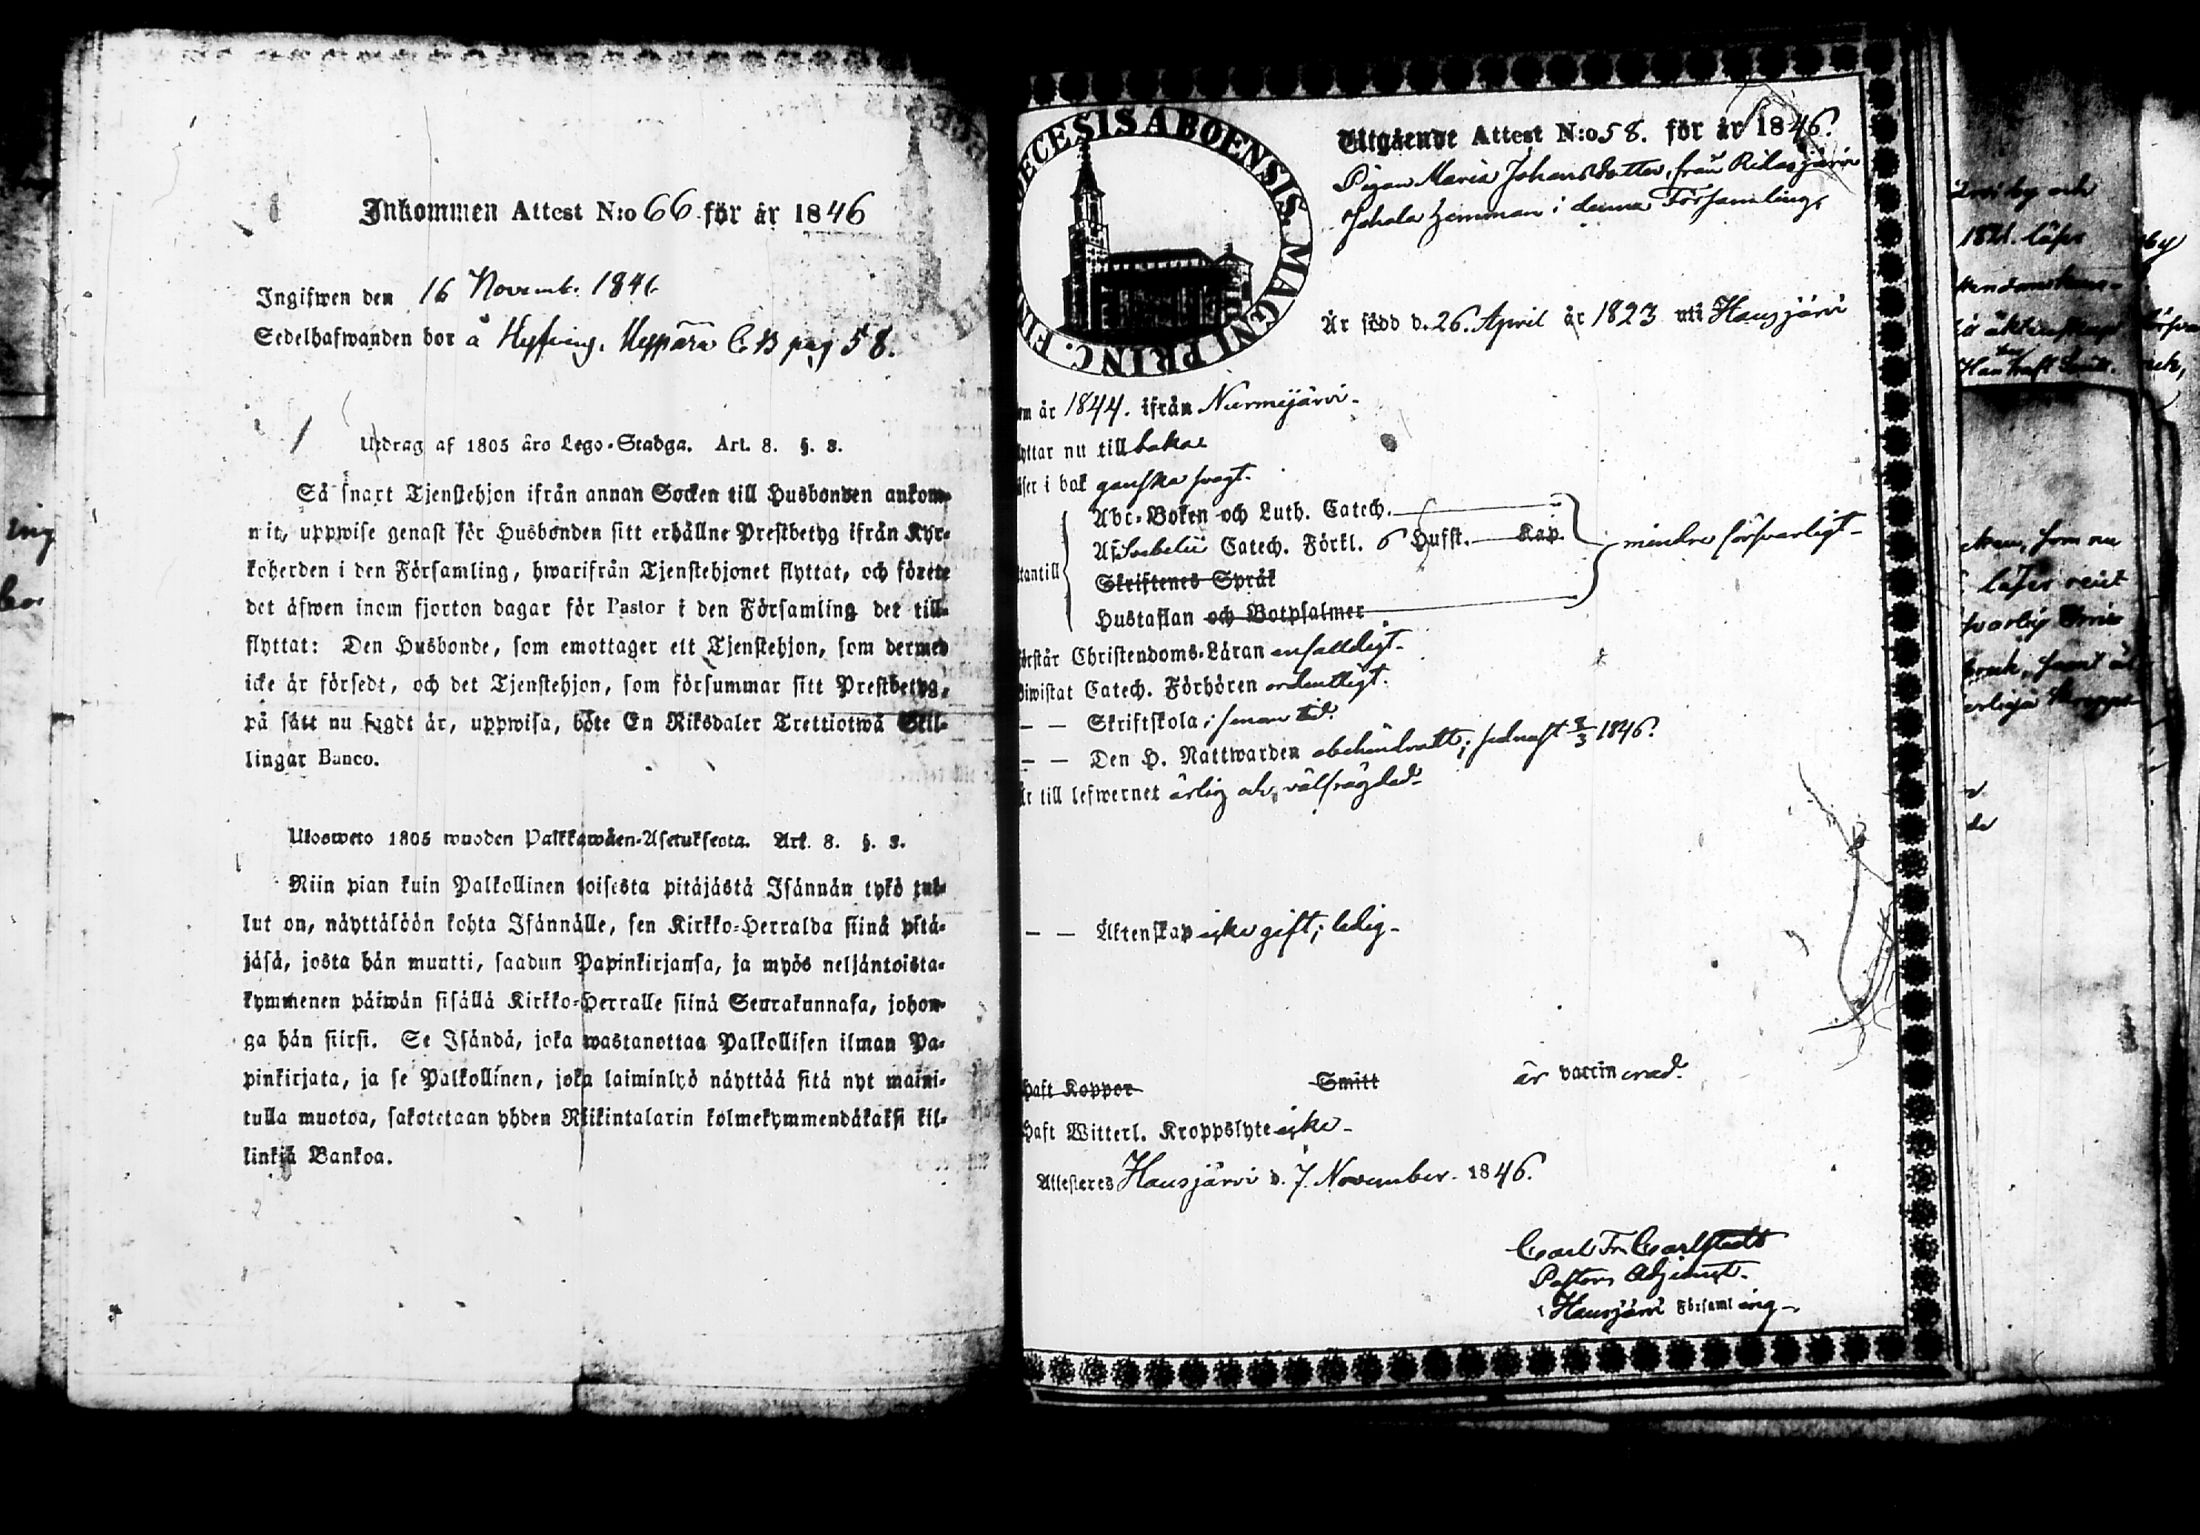 Inkommen Attest N:o 66 för år 1846
Ingifwen den 16 Novemb. 1846
Sedelhafwanden bor å Hyfving. Uppära C B pag 58.
Utdrag af 1805 års Lego-Stadga. Art. 8. §. 3.
Så snart Tjenstehjon ifrån annan Socken till Husbonden ankom-
mit, uppwise genast för Husbonden sitt erhållne Prestbetyg ifrån Kyr-
koherden i den Församling, hwarifrån Tjenstehjonet flyttat, och förete
det äfwen inom fjorton dagar för Pastor i den Församling det till-
flyttat: Den Husbonde, som emottager ett Tjenstehjon, som dermed
icke är försedt, och det Tjenstehjon, som försummar sitt Prestbetyg,
på sätt nu sagdt är, uppwisa, böte En Riksdaler Trettiotwå Skil-
lingar Banco.
Ulosweto 1805 wuoden Palkkawäen-Asetuksesta. Art. 8. §. 3.
Niin pian kuin Palkollinen toisesta pitäjästä Isännän tykö tul-
lut on, näyttäköön kohta Isännälle, sen Kirkko-Herralda siinä pitä-
jäsä, josta hän muutti, saadun Papinkirjansa, ja myös neljäntoista-
kymmenen päiwän sisällä Kirkko-Herralle siinä Seurakunnasa, johon-
ga hän siirsi. Se Isändä, joka wastanottaa Palkollisen ilman Pa-
pinkirjata, ja se Palkollinen, joka laiminlyö näyttää sitä nyt maini-
tulla muotoa, sakotetaan yhden Riikintalarin kolmekymmendäkaksi kil-
linkiä Bankoa.
DECESIS ABOENSIS. MAGNI PRINC. FIN
Utgående Attest N:o 58. för år 1846.
Pigan Maria Johansdotter, från Ridasjärvi
Johala hemman i denna Församling,
Är född d. 26. April år 1823 uti Hausjärvi
en år 1844. ifrån Nurmijärvi.
yttar nu till baka
äser i bok ganska svagt.
Abc-Boken och Luth. Catech.
Af Svebelii Catech. Förkl. 6 Hufst. Kap.
mindre försvarligt
tantill
Skriftenes Språk
Hustaflan och Botpsalmer
örstår Christendoms-Läran enfaldigt.
Biwistat Catech. Förhören ordentligt.
— — Skriftskola i sinom tid.
— — Den H. Nattwarden obehindradt; sednast 8/3 1846.
Är till lefwernet ärlig och välfrägdad.
— — Äktenskap icke gift; ledig.
haft Koppor Smitt är vaccinerad.
haft Witterl. Kroppslyte icke
Attesteres Hausjärvi d. 7. November. 1846.
Carl Fr. Carlstedt
Pastors Adjunct.
i Hausjärvi Församling